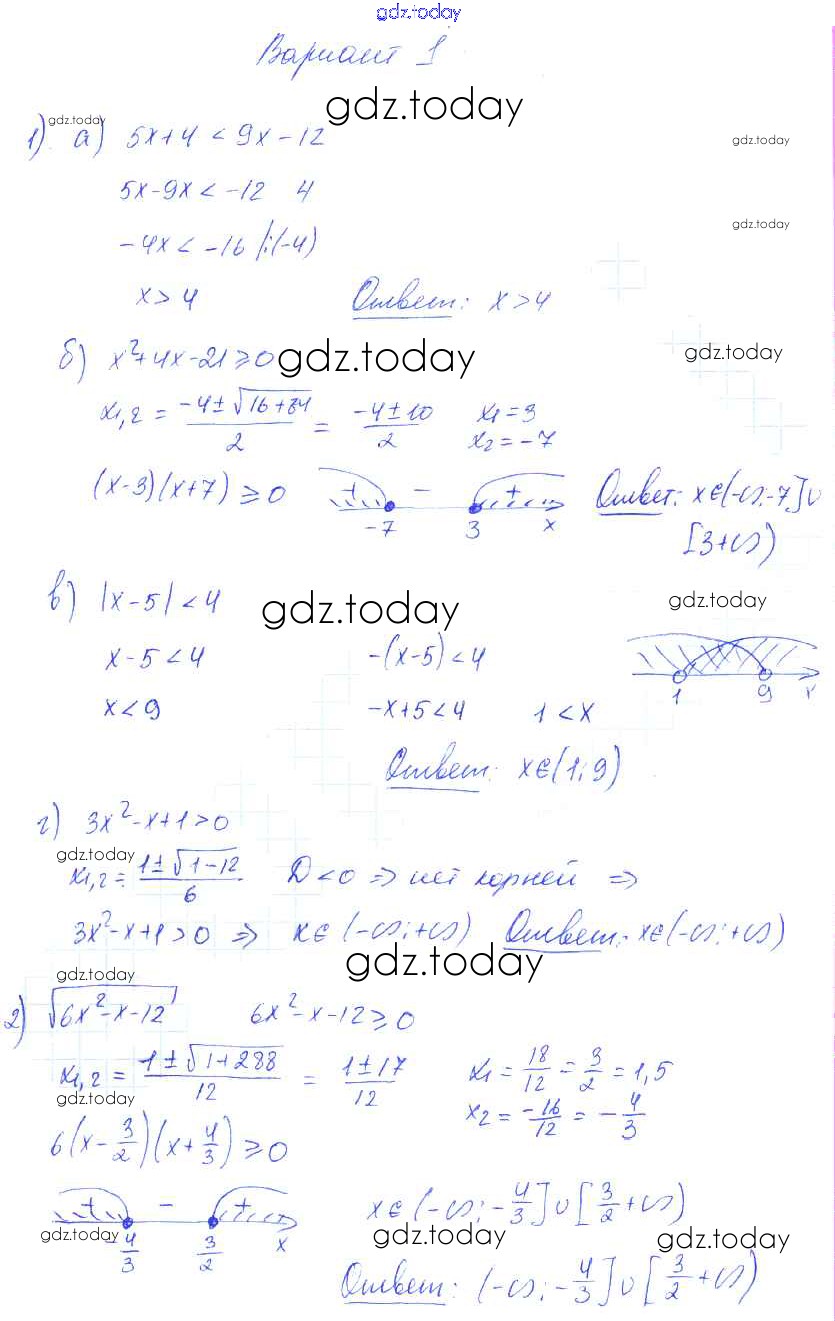 gdz.today
Вариант 1
gdz.today
gdz.today
1) а) 5x+4 < 9x-12
gdz.today
5x-9x < -12 4
gdz.today
-4x < -16 |:(-4)
x > 4 Ответ: x > 4
б) x²+4x-21 ≥ 0
gdz.today
gdz.today
x1,2 = (-4±√(16+84))/2 = (-4±10)/2 x1 = 3
x2 = -7
(x-3)(x+7) ≥ 0 + - + -7 3 x Ответ: x∈(-∞;-7]∪
[3+∞)
в) |x-5| < 4
gdz.today
gdz.today
x-5 < 4 -(x-5) < 4
x < 9 -x+5 < 4 1 < x 1 9 x
Ответ: x∈(1;9)
г) 3x²-x+1 > 0
gdz.today
x1,2 = (1±√(1-12))/6 D < 0 ⇒ нет корней ⇒
3x²-x+1 > 0 ⇒ x∈(-∞;+∞) Ответ: x∈(-∞;+∞)
gdz.today
gdz.today
2) √(6x²-x-12) 6x²-x-12 ≥ 0
x1,2 = (1±√(1+288))/12 = (1±17)/12 x1 = 18/12 = 3/2 = 1,5
gdz.today
x2 = -16/12 = -4/3
6(x-3/2)(x+4/3) ≥ 0
+ - + -4/3 3/2 x x∈(-∞;-4/3]∪[3/2+∞)
gdz.today
gdz.today
gdz.today
Ответ: (-∞;-4/3]∪[3/2+∞)